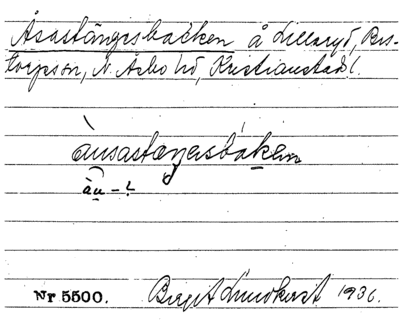 Åsastängesbacken å Lillaryd, Bos-
torpson, N. Åsbo hd, Kristianstads l.
àusastæŋesbáken
àu - ?
Nr 5500. Birgit Lindkvist 1936.